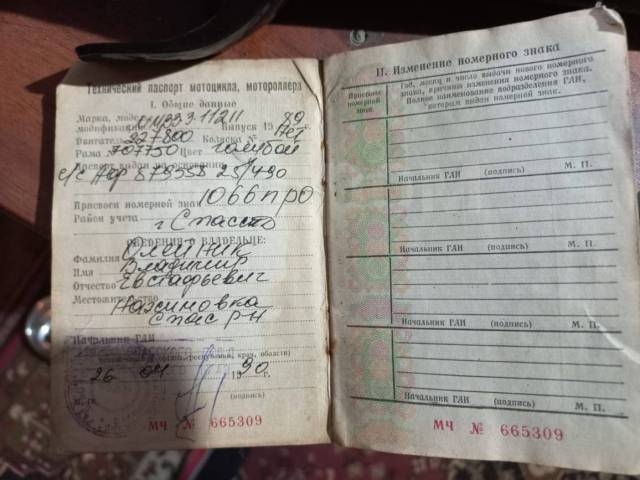 Технический паспорт мотоцикла, мотороллера
I. Общие данные
Марка, моде
модификация Выпуск 19 89 г.
Двигатель 227800 Коляска № Нет
Рама № 707750 Цвет голубой
Паспорт выдан на основании
с/с 879558 25/490
Присвоен номерной знак 1066 ПРО
Район учета г Спасск
СВЕДЕНИЯ О ВЛАДЕЛЬЦЕ:
Фамилия Олейник
Имя Владимир
Отчество Евстафьевич
Местожительство
Нахимовка
Спас р-н
Начальник ГАИ
республики, края, области)
26 04 19 90 г.
(подпись)
МЧ № 665309
II. Изменение номерного знака
Присвоен номерной знак
Год, месяц и число выдачи нового номерного
знака, причина изменения номерного знака.
Полное наименование подразделения ГАИ,
которым выдан номерной знак.
Начальник ГАИ (подпись) М. П.
Начальник ГАИ (подпись) М. П.
Начальник ГАИ (подпись) М. П.
Начальник ГАИ (подпись) М. П.
МЧ № 665309